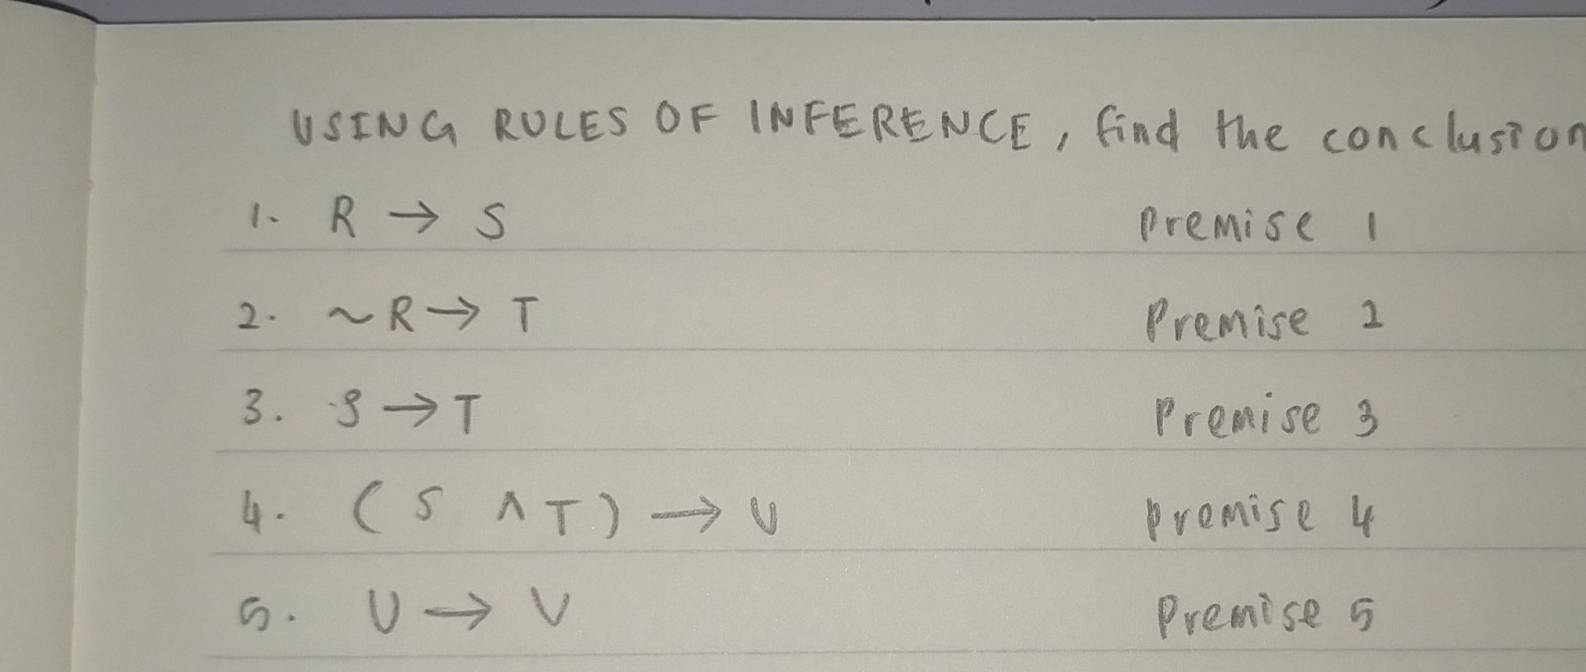 USING RULES OF INFERENCE, find the conclusion
1. R → S Premise 1
2. ~R → T Premise 2
3. S → T Premise 3
4. (S ∧ T) → U Premise 4
5. U → V Premise 5